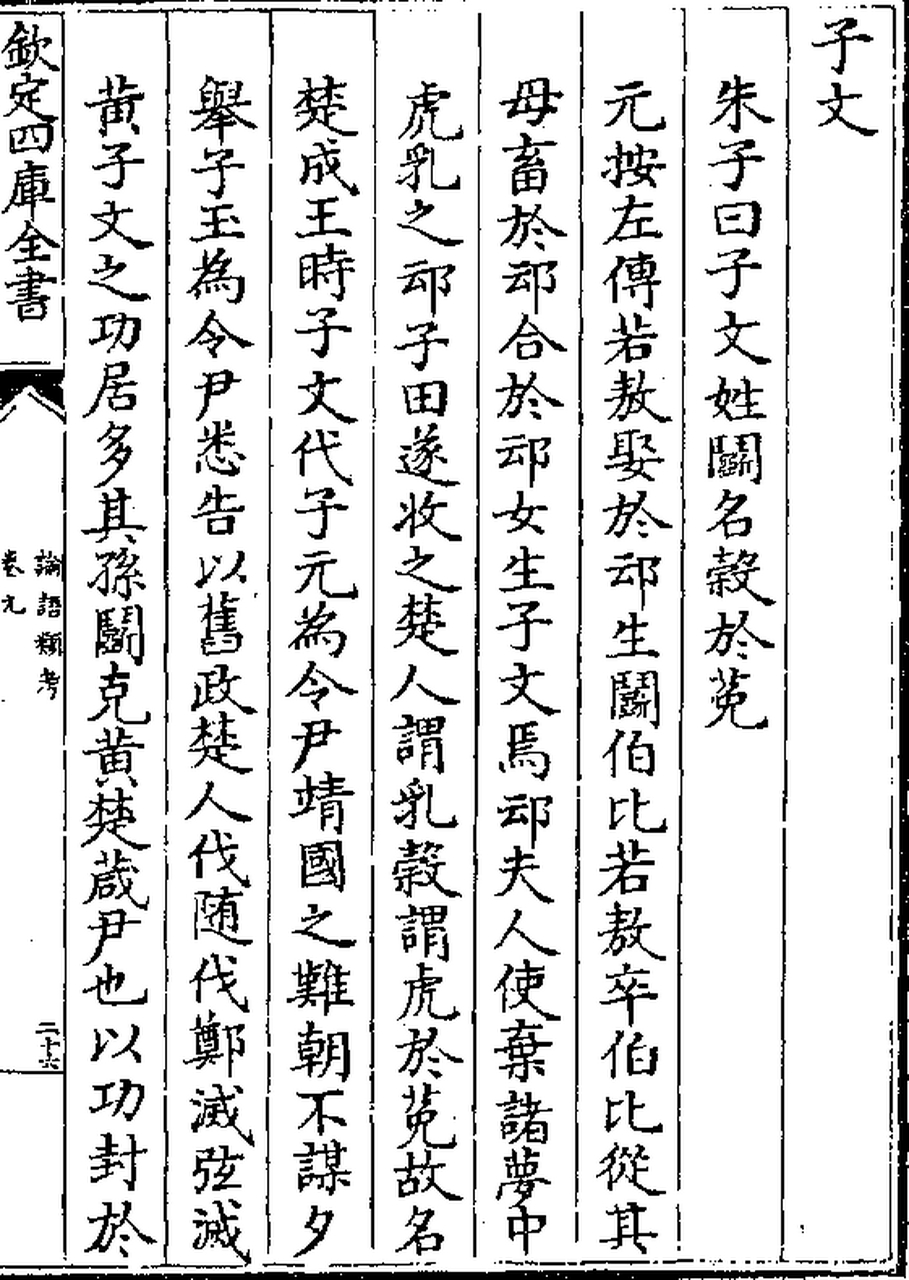 子文
朱子曰子文姓鬭名榖於菟
元按左傳若敖娶於䢵生鬭伯比若敖卒伯比從其
母畜於䢵合於䢵女生子文焉䢵夫人使棄諸夢中
虎乳之䢵子田遂收之楚人謂乳榖謂虎於菟故名
楚成王時子文代子元為令尹靖國之難朝不謀夕
舉子玉為令尹悉告以舊政楚人伐随伐鄭滅弦滅
黄子文之功居多其孫鬭克黄楚葴尹也以功封於
欽定四庫全書
論語類考
卷九
二十六